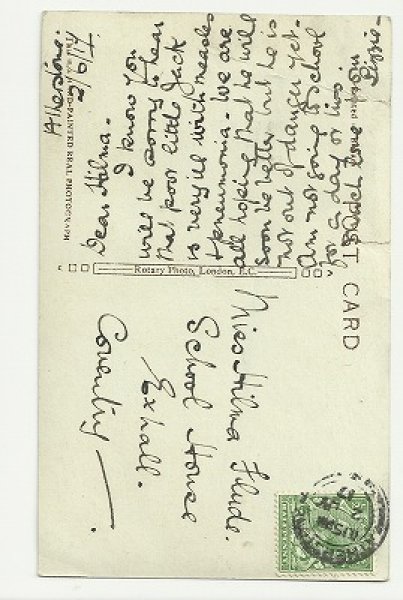 Atherstone.
2/6/14
Dear Hilma-
I know you
will be sorry to hear
that poor little Jack
is very ill with measles
& pneumonia - We are
all hoping that he will
soon be better but he is
not out of danger yet-
Am not going to school
for a day or two.
Much love from
Lizzie-
HAND-PAINTED REAL PHOTOGRAPH
Rotary Photo, London, E.C.
POST CARD
Miss Hilma
School House
Exhall.
Coventry.